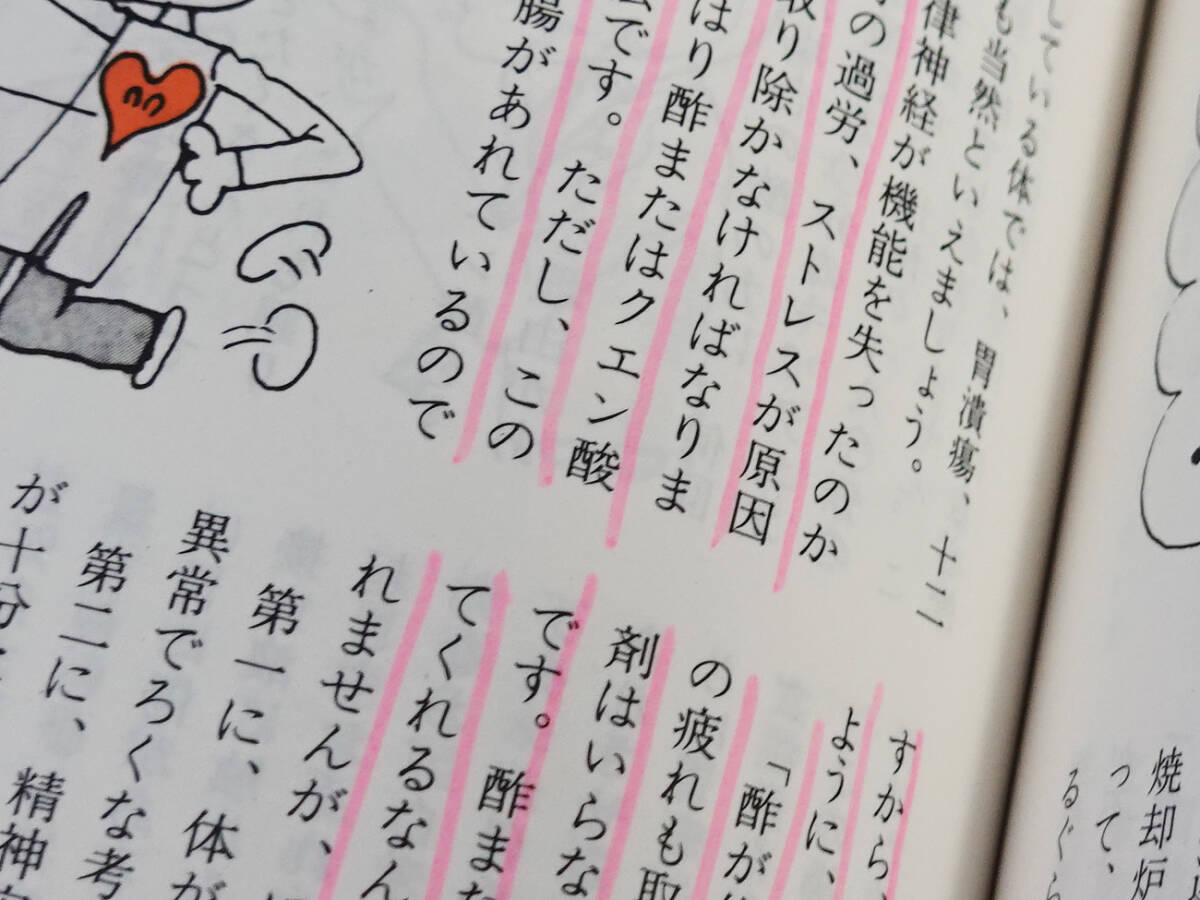 している体では、胃潰瘍、十二
も当然といえましょう。
律神経が機能を失ったのか
の過労、ストレスが原因
取り除かなければなりま
はり酢またはクエン酸
です。ただし、この
腸があれているので
すから、
ように、
「酢が
の疲れも取
剤はいらな
です。酢ま
てくれるなん
れませんが、
第一に、体が
異常でろくな考
第二に、精神
が十分
焼却炉
って、
るぐら